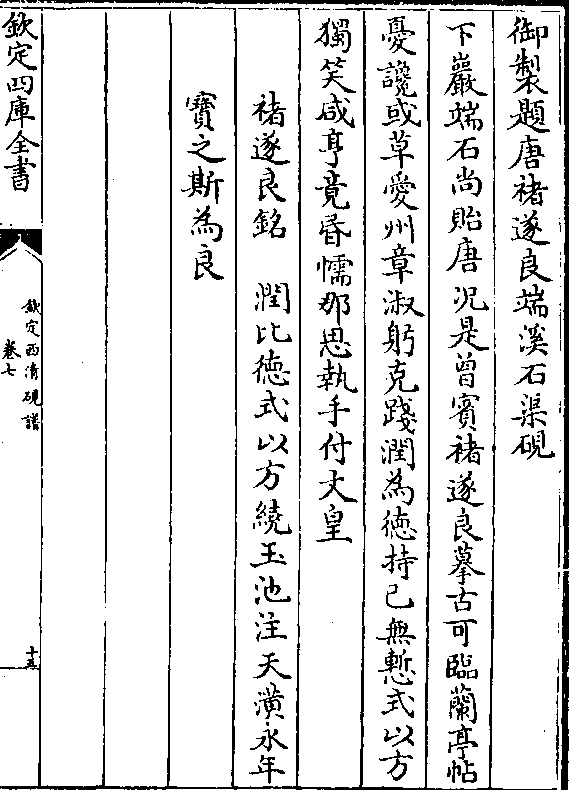 御製題唐褚遂良端溪石渠硯
下巖端石尚貽唐况是曾賓褚遂良摹古可臨蘭亭帖
憂讒或草愛州章淑躬克踐潤為徳持已無慙式以方
獨笑咸亨竟昏懦那思執手付丈皇
褚遂良銘 潤比徳式以方繞玉池注天潢永年
寶之斯為良
欽定四庫全書
欽定西清硯譜
卷七
十五